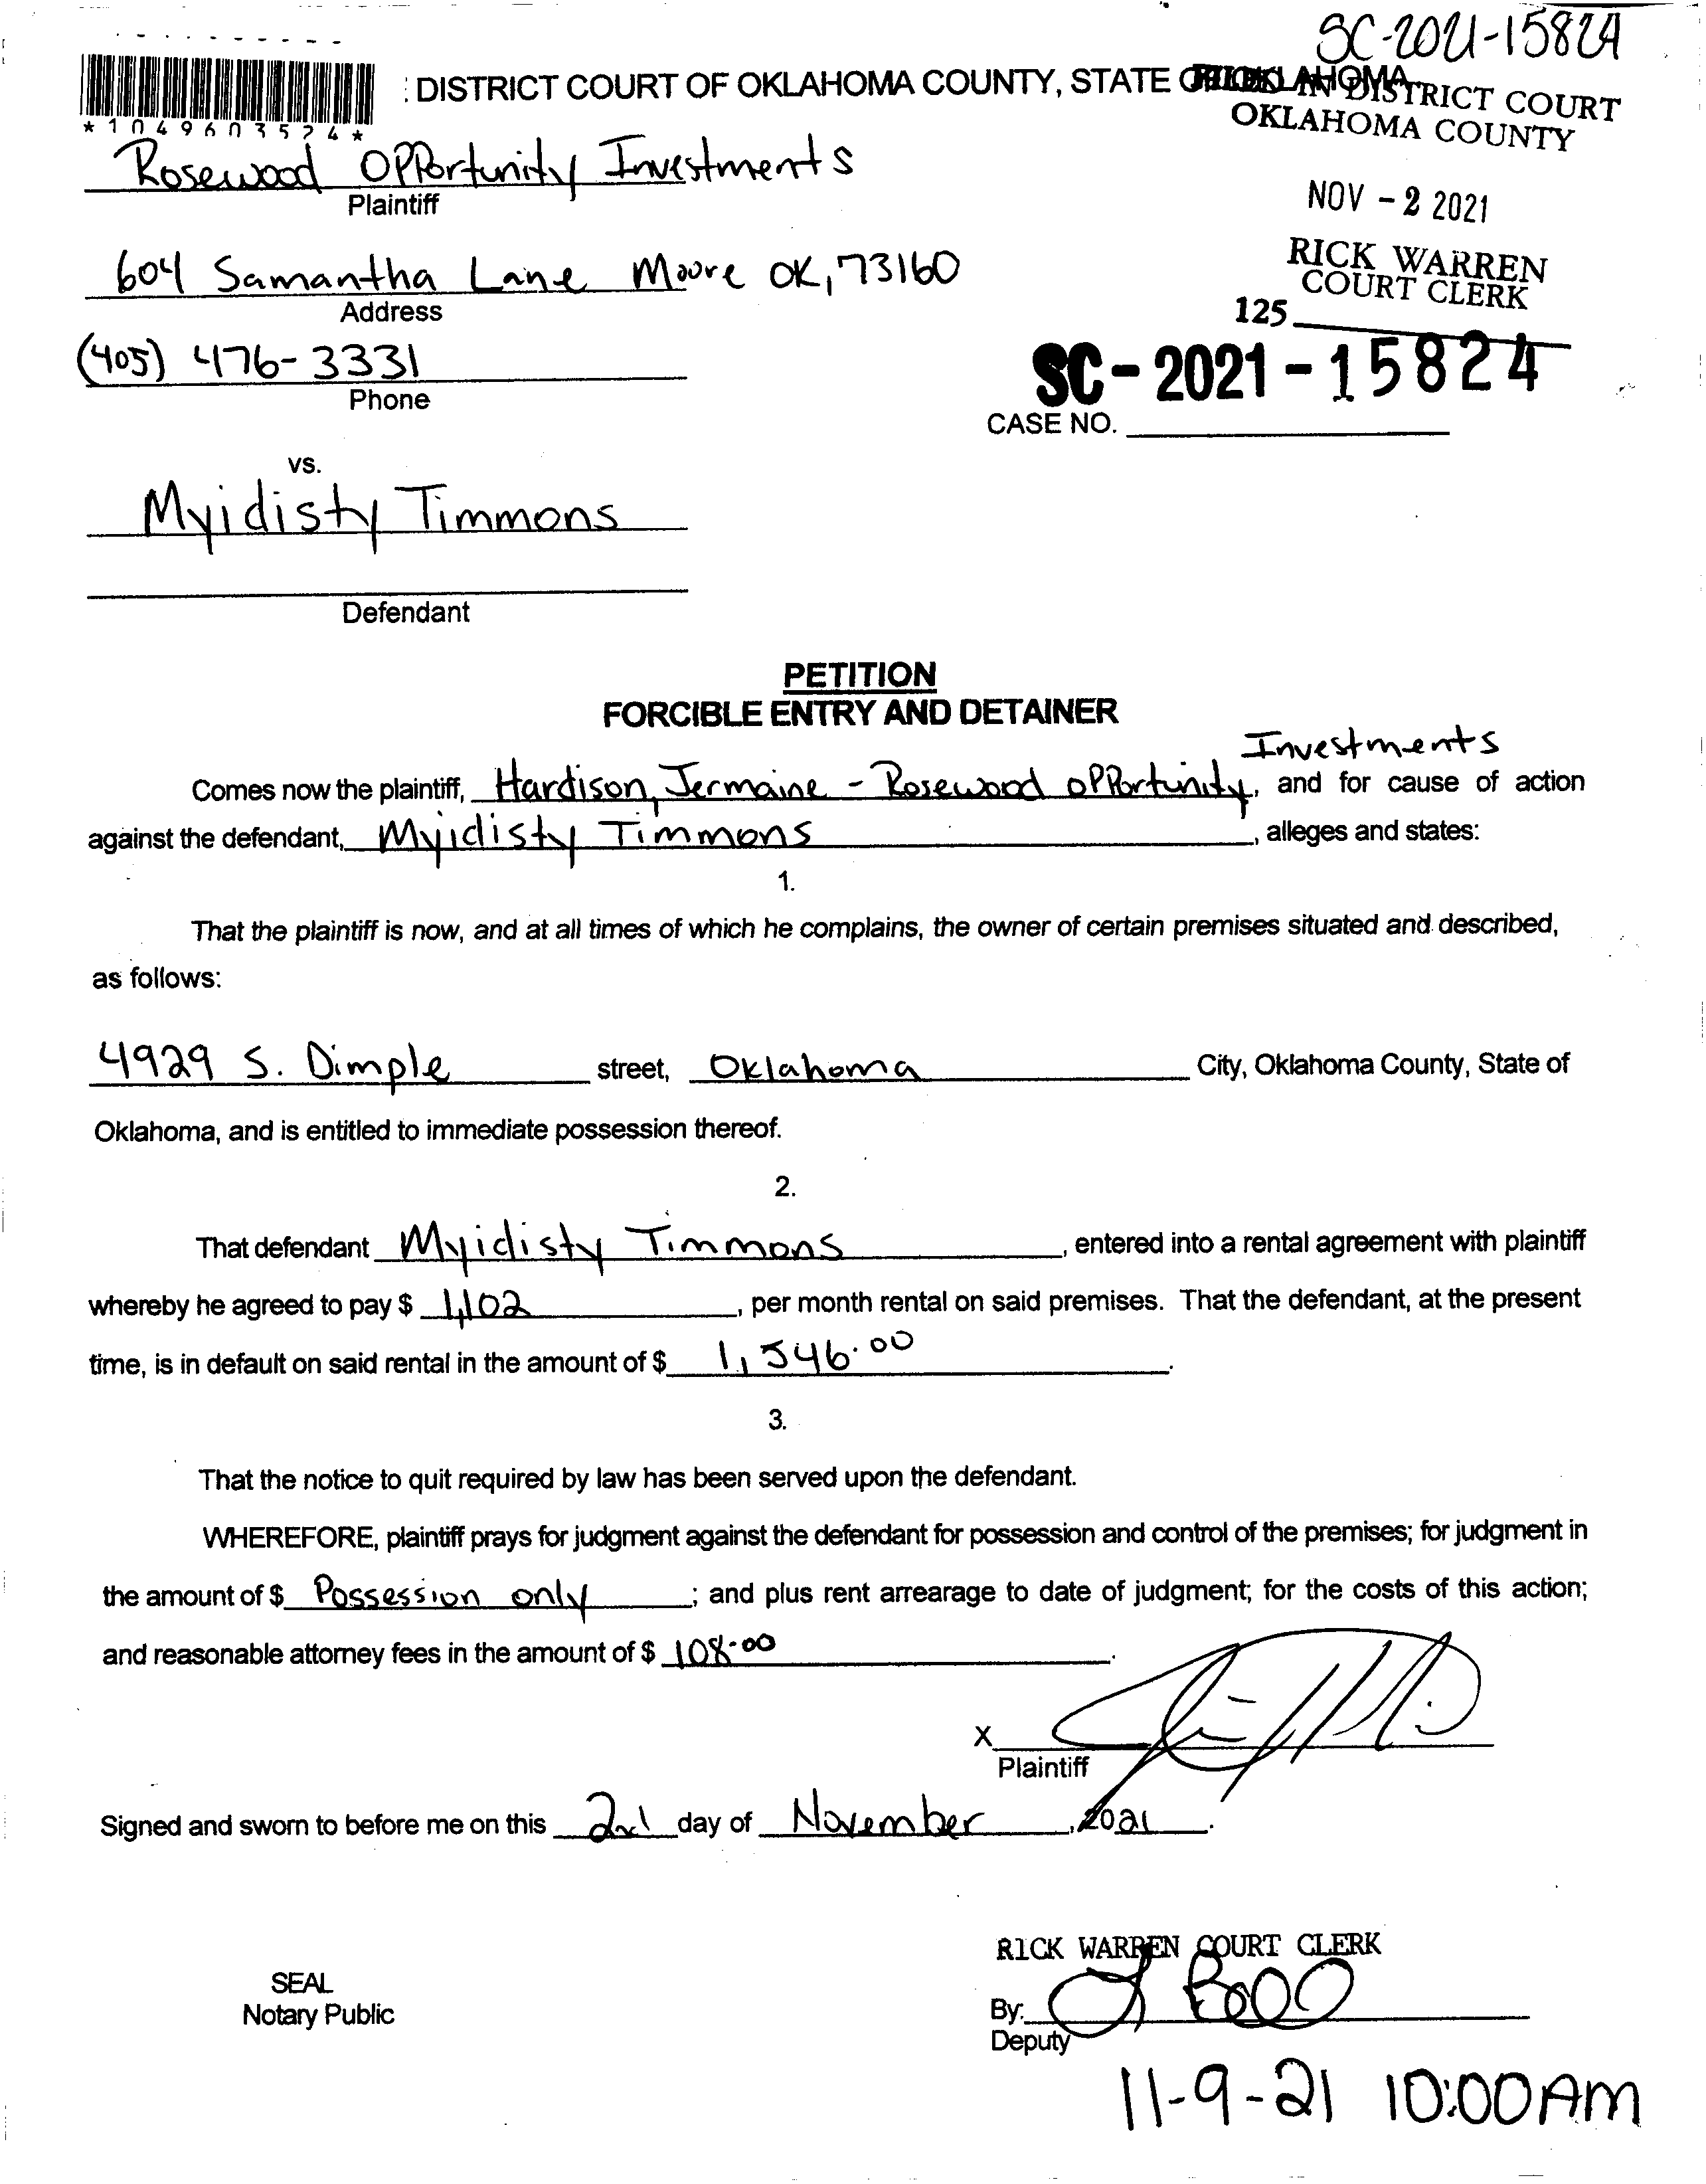 SC-2021-15824
DISTRICT COURT OF OKLAHOMA COUNTY, STATE OF OKLAHOMA
FILED IN DISTRICT COURT
OKLAHOMA COUNTY
*1049603524*
Rosewood Opportunity Investments
Plaintiff
NOV - 2 2021
604 Samantha Lane Moore OK, 73160
Address
RICK WARREN
COURT CLERK
125
(405) 476-3331
Phone
SC-2021-15824
CASE NO.
vs.
Myidisty Timmons
Defendant
PETITION
FORCIBLE ENTRY AND DETAINER
Investments
Comes now the plaintiff, Hardison, Jermaine - Rosewood Opportunity, and for cause of action
against the defendant, Myidisty Timmons, alleges and states:
1.
That the plaintiff is now, and at all times of which he complains, the owner of certain premises situated and described,
as follows:
4929 S. Dimple street, Oklahoma City, Oklahoma County, State of
Oklahoma, and is entitled to immediate possession thereof.
2.
That defendant Myidisty Timmons, entered into a rental agreement with plaintiff
whereby he agreed to pay $ 1,102, per month rental on said premises. That the defendant, at the present
time, is in default on said rental in the amount of $ 1,546.00.
3.
That the notice to quit required by law has been served upon the defendant.
WHEREFORE, plaintiff prays for judgment against the defendant for possession and control of the premises; for judgment in
the amount of $ Possession only; and plus rent arrearage to date of judgment; for the costs of this action;
and reasonable attorney fees in the amount of $ 108.00.
X
Plaintiff
Signed and sworn to before me on this 2nd day of November, 2021.
RICK WARREN COURT CLERK
SEAL
Notary Public
By:
Deputy
11-9-21 10:00AM